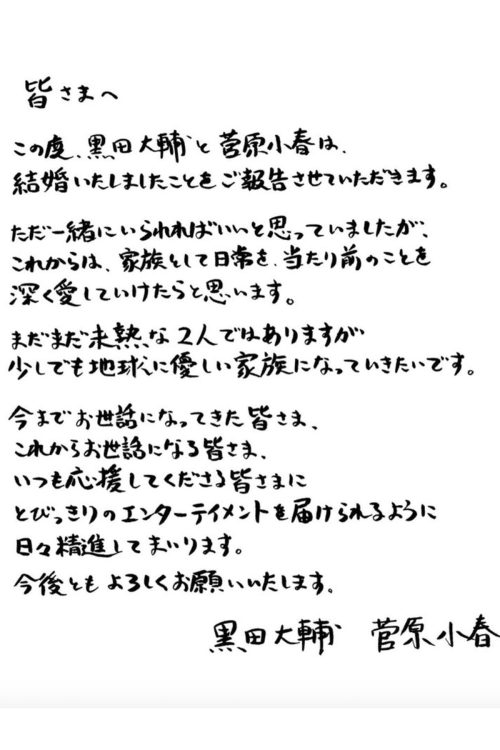 皆さまへ
この度、黒田大輔と菅原小春は、
結婚いたしましたことをご報告させていただきます。
ただ一緒にいられればいいと思っていましたが、
これからは、家族として日常を、当たり前のことを
深く愛していけたらと思います。
まだまだ未熟な2人ではありますが
少しでも地球に優しい家族になっていきたいです。
今までお世話になってきた皆さま、
これからお世話になる皆さま、
いつも応援してくださる皆さまに
とびっきりのエンターテイメントを届けられるように
日々精進してまいります。
今後ともよろしくお願いいたします。
黒田大輔 菅原小春